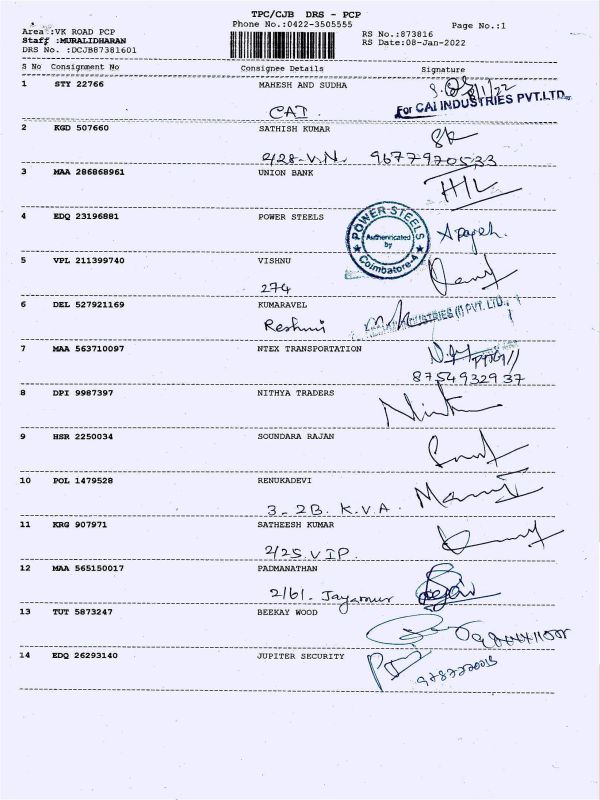 TPC/CJB DRS - PCP
Area :VK ROAD PCP Phone No.:0422-3505555 Page No.:1
Staff :MURALIDHARAN RS No.:873816
DRS No. :DCJB87381601 RS Date:08-Jan-2022
S No Consignment No Consignee Details Signature
1 STY 22766 MAHESH AND SUDHA
CAI For CAI INDUSTRIES PVT.LTD.
2 KGD 507660 SATHISH KUMAR SK
2/28-V.N. 9677970533
3 MAA 286868961 UNION BANK
4 EDQ 23196881 POWER STEELS
POWER STEELS
Authenticated
by
Coimbatore-4
5 VPL 211399740 VISHNU
274
6 DEL 527921169 KUMARAVEL
Reshmi INDUSTRIES (I) PVT. LTD.,
7 MAA 563710097 NTEX TRANSPORTATION
8754932937
8 DPI 9987397 NITHYA TRADERS
9 HSR 2250034 SOUNDARA RAJAN
10 POL 1479528 RENUKADEVI
3-2B. K.V.A.
11 KRG 907971 SATHEESH KUMAR
2/25.VIP.
12 MAA 565150017 PADMANATHAN
2/61.
13 TUT 5873247 BEEKAY WOOD
14 EDQ 26293140 JUPITER SECURITY